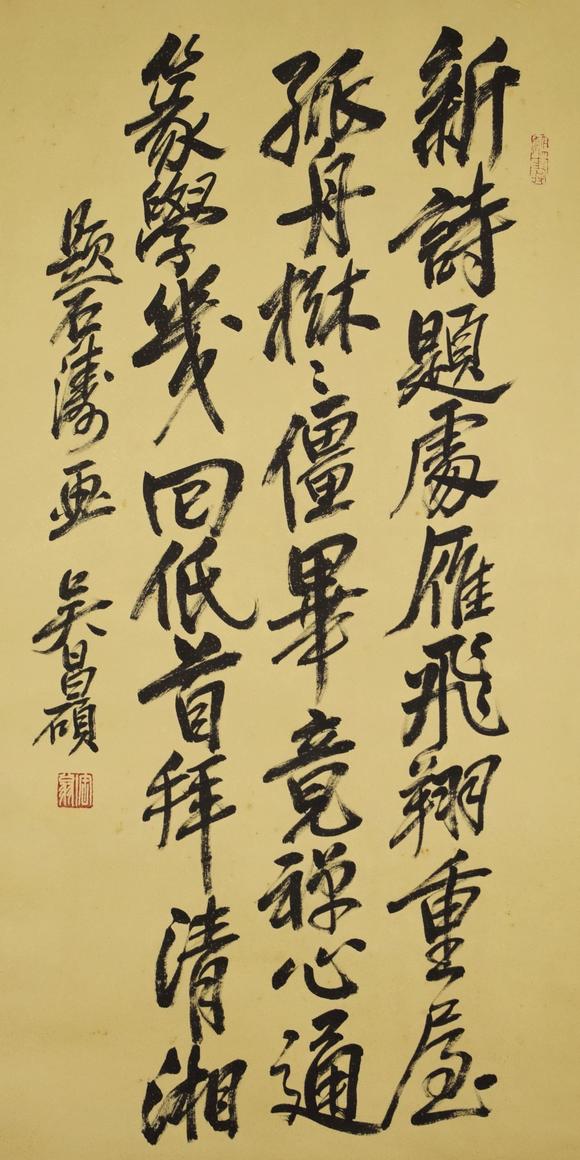 新詩題處雁飛翔重屋
孤舟樹〻僵畢竟禪心通
篆學幾回低首拜清湘
題石濤畫 吳昌碩